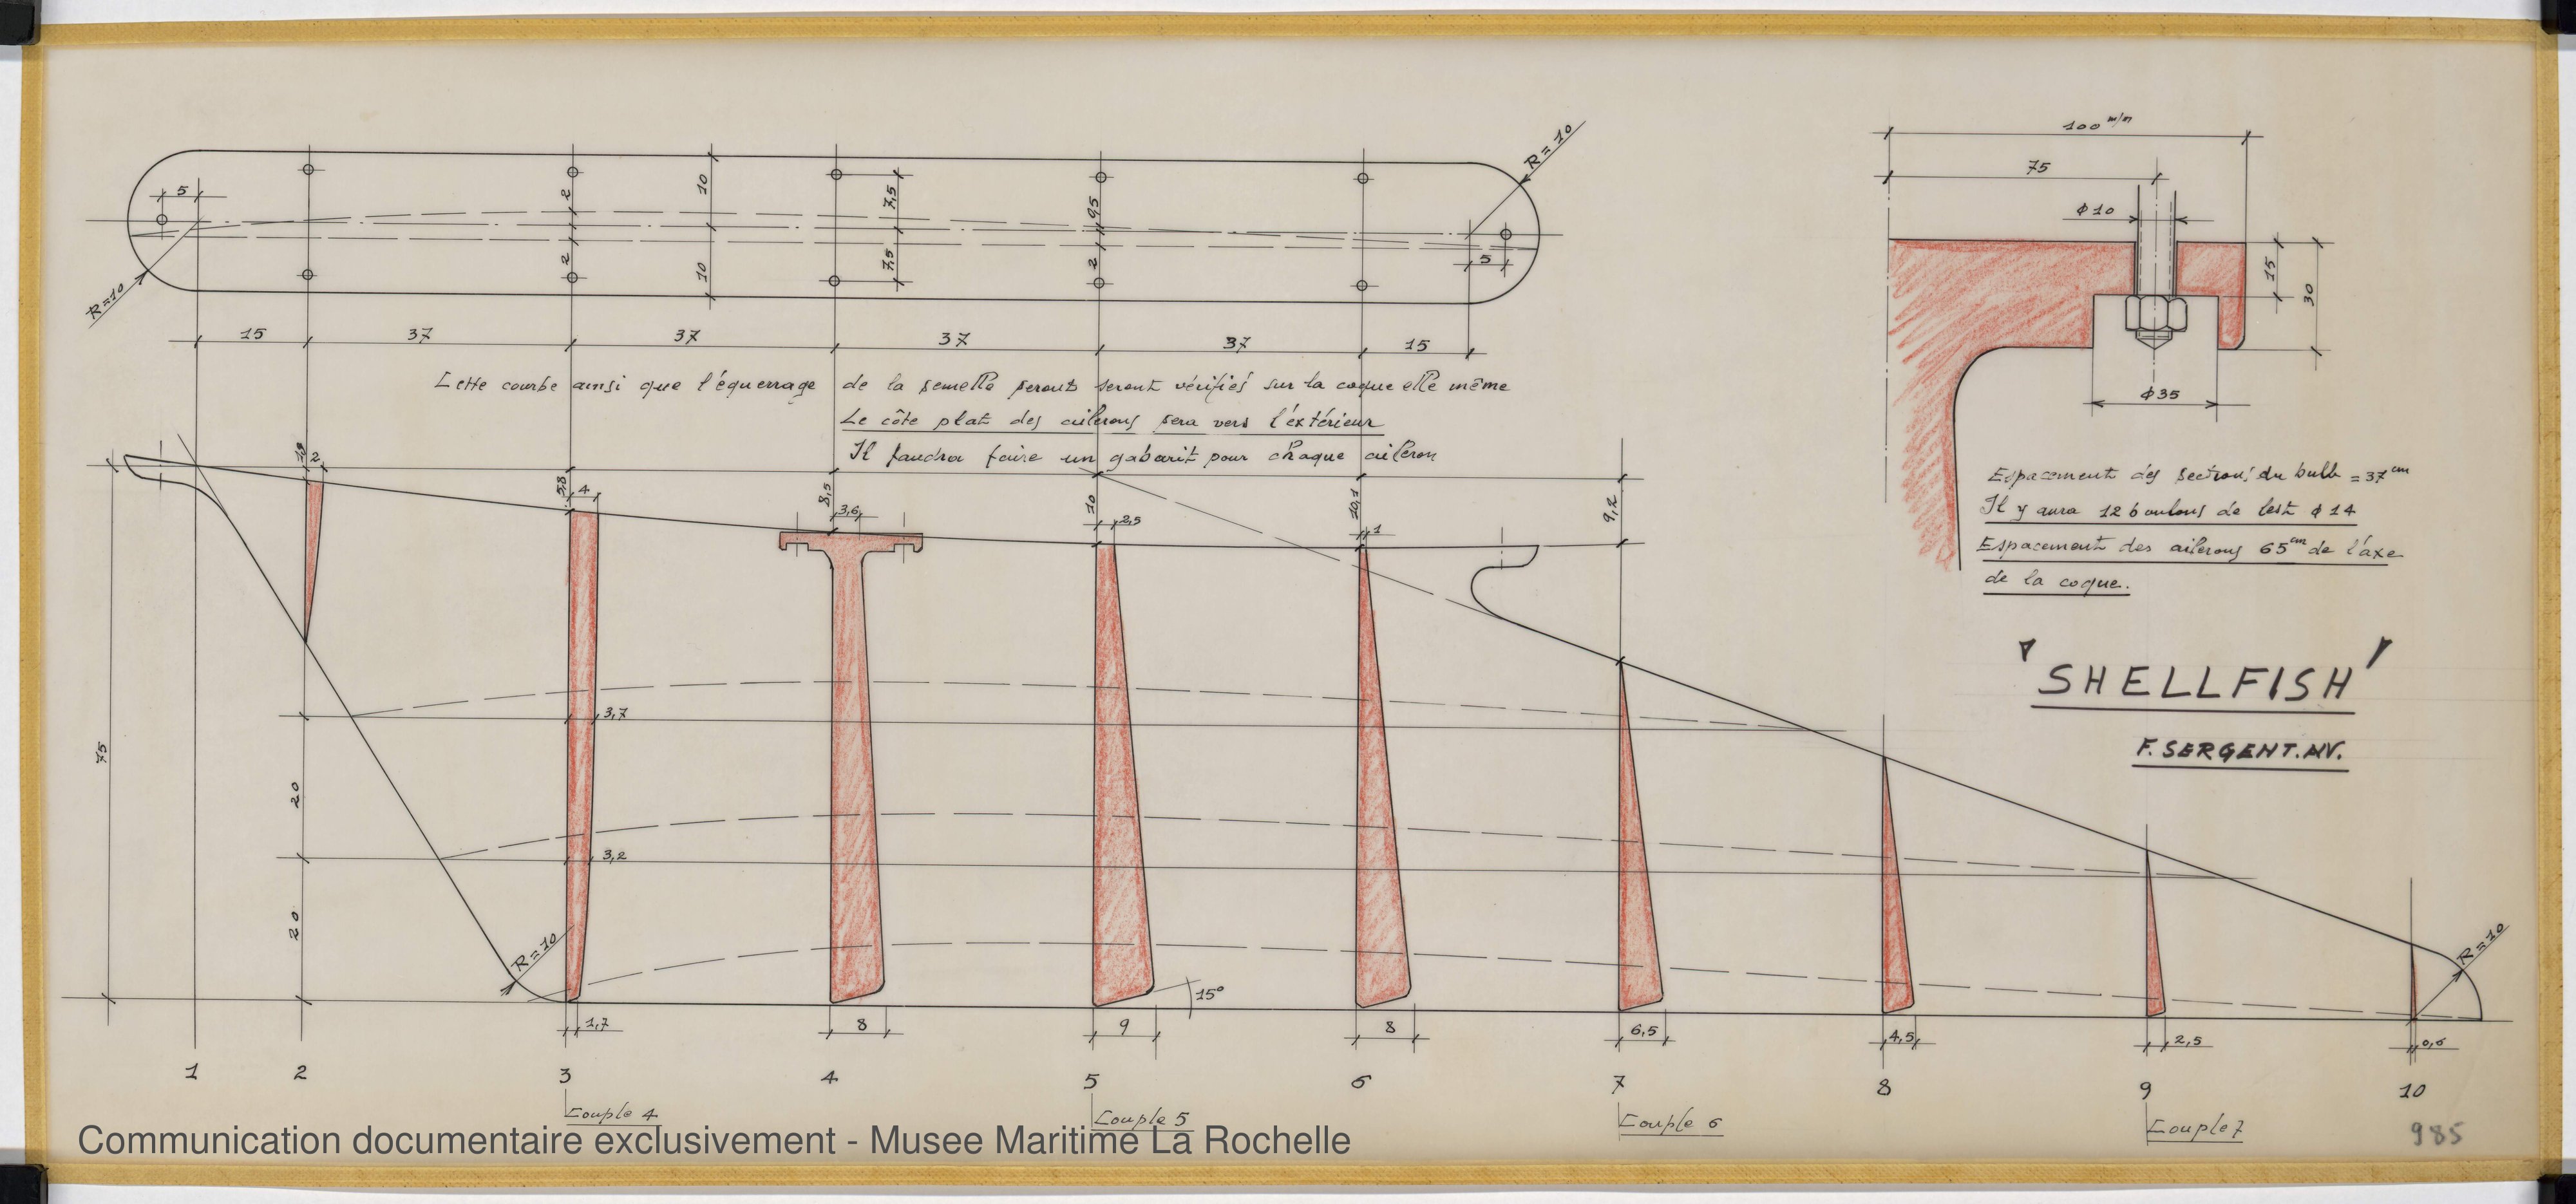 R=10
5
2
10
7,5
95
R=10
2
10
7,5
2
5
R=10
15
37
37
37
37
15
Cette courbe ainsi que l'équerrage de la semelle seront seront vérifiés sur la coque elle même
Le côte plat des ailerons sera vers l'extérieur
Il faudra faire un gabarit pour chaque aileron
100 m/m
75
ϕ10
15
30
ϕ35
Espacement des sections du bulb = 37 cm
Il y aura 12 boulons de lest ϕ 14
Espacement des ailerons 65 cm de l'axe
de la coque.
'SHELLFISH'
F. SERGENT. NV.
2
5,8
4
8,5
3,6
10
2,5
10,1
1
9,2
75
3,7
20
3,2
20
R=10
15°
R=10
1,7
8
9
8
6,5
4,5
2,5
0,6
1
2
3
4
5
6
7
8
9
10
Couple 4
Couple 5
Couple 6
Couple 7
985
Communication documentaire exclusivement - Musee Maritime La Rochelle